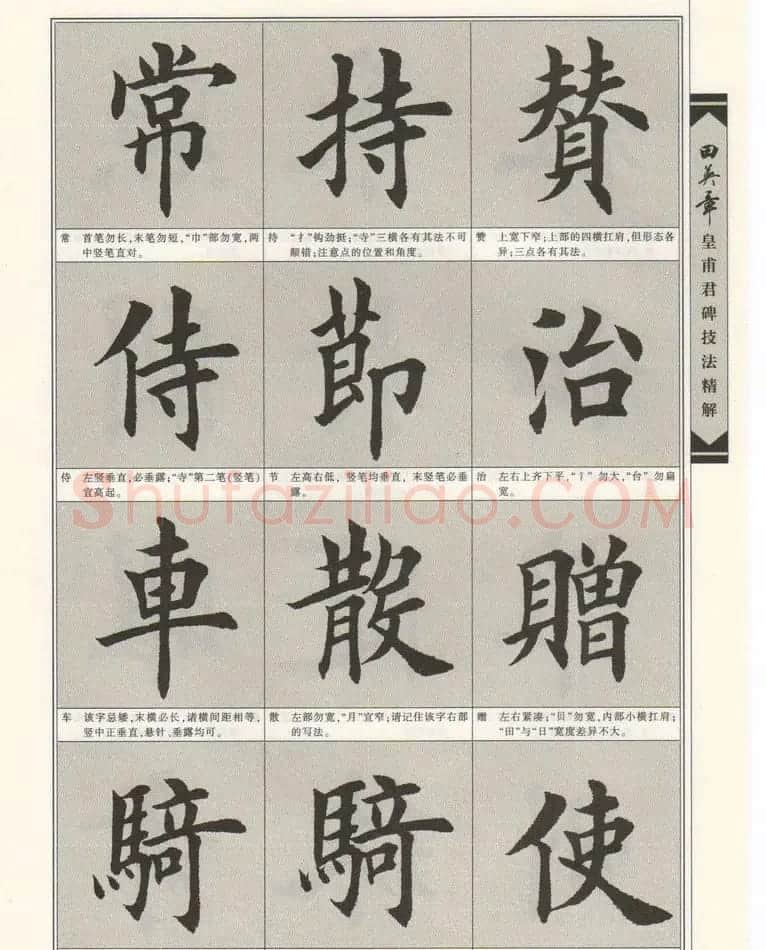 常 持 賛
常 首笔勿长,末笔勿短,“巾”部勿宽,两
中竖笔直对。
持 “扌”钩劲挺;“寺”三横各有其法不可
颠错;注意点的位置和角度。
赞 上宽下窄;上部的四横扛肩,但形态各
异;三点各有其法。
侍 節 治
侍 左竖垂直,必垂露;“寺”第二笔(竖笔)
宜高起。
节 左高右低,竖笔均垂直,末竖笔必垂
露。
治 左右上齐下平,“氵”勿大,“台”勿扁
宽。
Shufaziliao.COM
車 散 贈
车 该字忌矮,末横必长,诸横间距相等,
竖中正垂直,悬针、垂露均可。
散 左部勿宽,“月”宜窄;请记住该字右部
的写法。
赠 左右紧凑;“贝”勿宽,内部小横扛肩;
“田”与“日”宽度差异不大。
騎 騎 使
田英章皇甫君碑技法精解